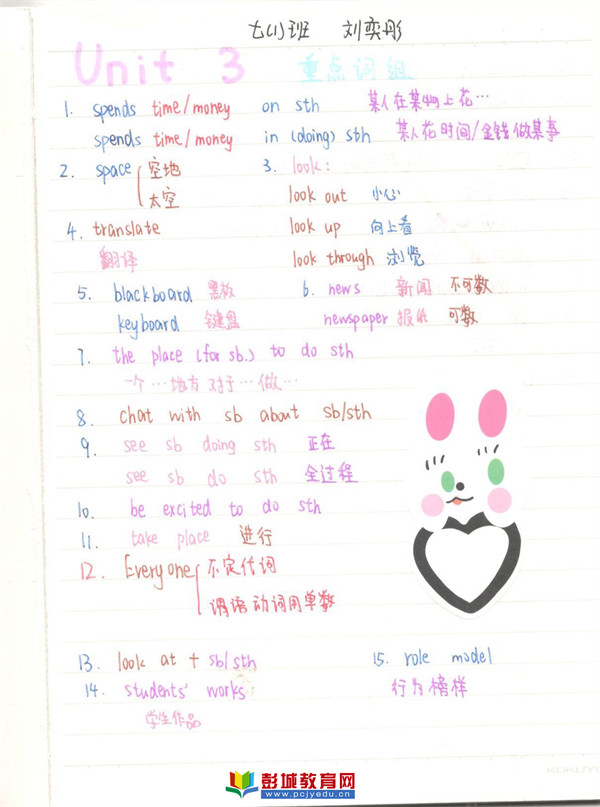 七(1)班 刘奕彤
Unit 3 重点词组
1. spends time/money on sth 某人在某物上花…
spends time/money in (doing) sth 某人花时间/金钱做某事
2. space 空地 3. look:
太空 look out 小心
4. translate look up 向上看
翻译 look through 浏览
5. blackboard 黑板 6. news 新闻 不可数
keyboard 键盘 newspaper 报纸 可数
7. the place (for sb.) to do sth
一个…地方对于…做…
8. chat with sb about sb/sth
9. see sb doing sth 正在
see sb do sth 全过程
10. be excited to do sth
11. take place 进行
12. Everyone 不定代词
谓语动词用单数
13. look at + sb/sth 15. role model
14. students' works: 行为榜样
学生作品
KOKUYO
彭城教育网
www.pcjyedu.cn